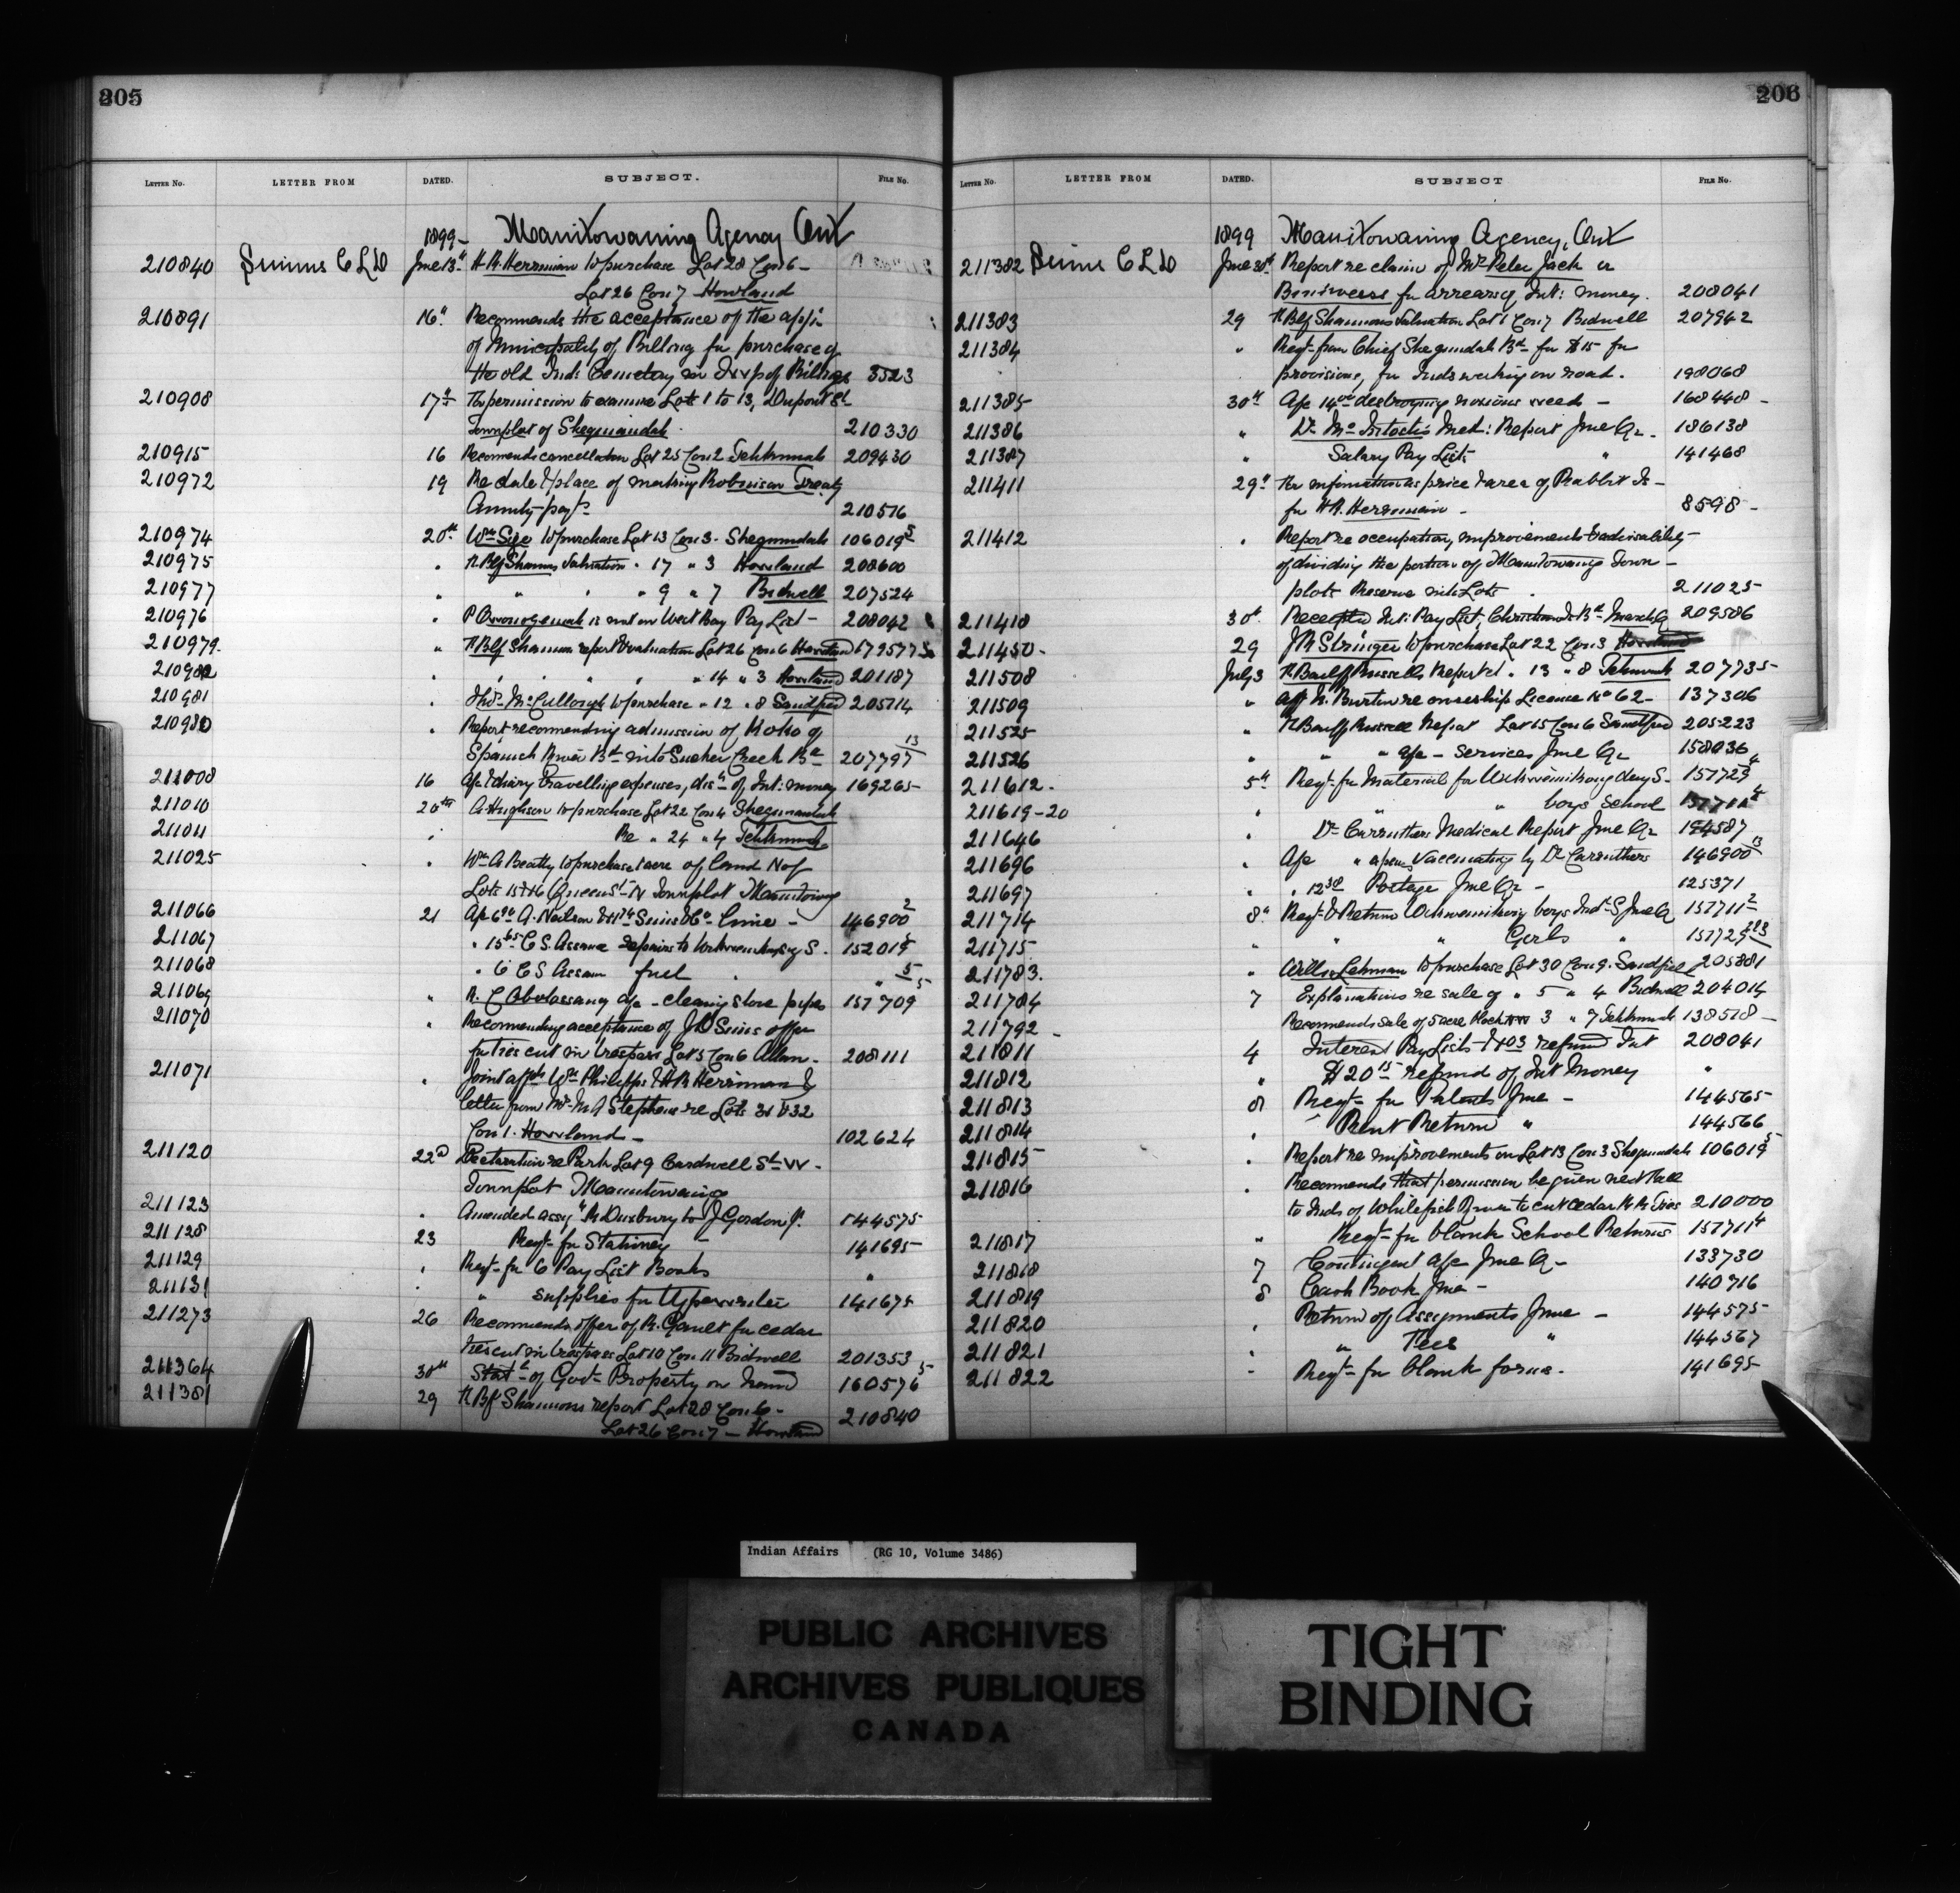 205
LETTER NO. LETTER FROM DATED. SUBJECT. FILE No.
1899- Manitowaning Agency Ont
210840 C L D June 13th H.R. Herriman to purchase Lot 28 Con 6 -
Lot 26 Con 7 Howland
210891 16th Recommends the acceptance of the appn
of Municipality of Billing for purchase of
the old Ind: Cemetery in Twp of Billings 3523
210908 17th for permission to examine Lots 1 to 13, Dupont St
Townplot of Sheguiandah. 210330
210915 16 Recomends cancellation Lot 25 Con 2 Tehkumah 209430
210972 19 Re date & place of making Robinson Treaty
Annuity payts 210516
210974 20th Wm to purchase Lot 13 Con 3. Sheguiandah 106019 5
210975 " Shannons Valuation " 17 " 3 Howland 208600
210977 " " " " 9 " 7 Bidwell 207524
210976 " P is not on West Bay Pay List - 208042
210979. " Shannon report & valuation Lot 26 Con 6 Howland
" " " " 14 " 3 Howland 201187
210981 " Thos McCullough to purchase " 12 " 8 Sandfield 205714
" Report recommending admission of of
Spanish River Bd into Sucker Creek Bd 207797 13
211008 16 a/c & diary travelling expenses, disn of Int: money 169265
211010 20th A Hughson to purchase Lot 22 Con 4 Sheguiandah
211011 " Re " 24 " 4 Tehkumah
211025 " Wm A Beatty to purchase 1 acre of land N of
Lots 15 & 16 Queen St W Townplot Manitowng
211066 21 A. Neilson Sims & Co Lime - 146900 2
211067 " C S. repairs to S. 152019 5
211068 " 6 C S fuel " " 5
211069 " a/c - cleaning stove pipes 157709 5
211070 " Recommending acceptance of J D Sims offer
for ties cut in trespass Lot 5 Con 6 Allan - 208111
211071 " Joint affts Wm Philipps & H R Herriman &
letter from Mr. M A Stephens re Lots 31 & 32
Con 1. Howland - 102624
211120 22d Declaration re Park Lot 9 Cardwell St W -
Townplot Manitowaning
211123 " Amended assgt Duxbury to J Gordon Jr. 144575
211128 23 Reqt for Stationery - 141695
211129 " Reqt for 6 Pay List Books "
211131 " " Supplies for Typewriter 141675
211273 26 Recommends offer of R. for cedar
ties cut in trespass Lot 10 Con 11 Bidwell 201353
211364 30th Statt of Govt Property on hand 160576 5
211381 29 Shannons report Lot 28 Con 6 -
Lot 26 Con 7 - Howland 210840
206
LETTER NO. LETTER FROM DATED. SUBJECT FILE No.
1899 Manitowaning Agency, Ont
211382 C L D June 30th Report re claim of Mr Peter Jack
for arrears of Int: money. 208041
211383 29 Shannons Valuation Lot 1 Con 7 Bidwell 207942
211384 " Reqt from Chief Sheguindah Bd for $15 for
provisions, for Inds working on road. 198068
211385 30th a/c destroying noxious weeds - 168448 -
211386 " Dr Mc Intoshs Med: Report June Qr. 186138
211387 " Salary Pay List " 141468
211411 29th for information as price & area of Rabbit Is -
for H.R. Herriman - 8598 -
211412 " Report re occupation, improvements & advisability -
of dividing the portion of Manitowang Town -
plots Reserve into Lots. 211025
211418 30th Receipted Int: Pay List, Bd March Q 209586
211450 - 29 J R Stringer to purchase Lot 22 Con 3
211508 July 3 Bailiff Russells Report " 13 " 8 Tehkumah 207735
211509 " aff Burtin re ownership License No 62 - 137306
211525 " Bailiff Russell Report Lot 15 Con 6 Sandfield 205223
211526 " " " a/c - services June Qr 158036
211612. 5th Reqt for Material for Wikwemikong day S. 157729 4
211619-20 " " " boys School
211646 " Dr Carruthers Medical Report June Qr
211696 " a/c " a/cs vaccinating by Dr Carruthers 146900 13
211697 " " 12 30 Postage June Qr - 125371
211714 8th Reqt & Return Wikwemikong boys Ind S June Q 157711 2
211715 " " " Girls " 157729
211783. " Lehman to purchase Lot 30 Con 9. Sandfield 205881
211784 7 Explanations re sale of " 5 " 4 Bidwell 204014
211792 - Recommends sale of 5 acre Block 3 " 7 Tehkumah 138518 -
211811 4 Interest Pay Lists refund Int 208041
211812 " $20 15 refund of Int Money "
211813 8 Reqt for Patents June - 144565
211814 " Rent Return " 144566
211815 " Report re improvements on Lot 13 Con 3 Sheguindah 106019 5
211816 " Recommends that permission be given next Fall
to Inds of Whitefish River to cut cedar R R Ties 210000
211817 " Reqt for blank School Returns 157711 4
211818 7 Contingent a/c June Q - 133730
211819 8 Cash Book June - 140716
211820 " Return of Assignments June - 144575
211821 " " Fees " 144567
211822 " Reqt for blank forms. 141695
Indian Affairs (RG 10, Volume 3486)
PUBLIC ARCHIVES
ARCHIVES PUBLIQUES
CANADA
TIGHT
BINDING